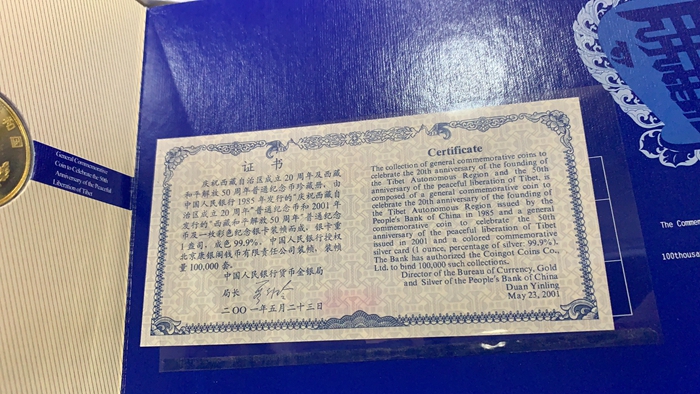 国
General Commemorative
Coin to Celebrate the 50th
Anniversary of the Peaceful
Liberation of Tibet
证书
庆祝西藏自治区成立20周年及西藏
和平解放50周年普通纪念币珍藏册,由
中国人民银行1985年发行的“庆祝西藏
自治区成立20周年”普通纪念币和2001年
发行的“西藏和平解放50周年”普通纪念
币及一枚彩色纪念银卡装帧而成。银卡重
1盎司,成色99.9%。中国人民银行授权
北京康银阁钱币有限责任公司装帧,装帧
量100,000套。
中国人民银行货币金银局
局长
二〇〇一年五月二十三日
Certificate
The collection of general commemorative coins to
celebrate the 20th anniversary of the founding of
the Tibet Autonomous Region and the 50th
anniversary of the peaceful liberation of Tibet, is
composed of a general commemorative coin to
celebrate the 20th anniversary of the founding of
the Tibet Autonomous Region issued by the
People's Bank of China in 1985 and a general
commemorative coin to celebrate the 50th
anniversary of the peaceful liberation of Tibet
issued in 2001 and a colored commemorative
silver card (1 ounce, percentage of silver: 99.9%).
The Bank has authorized the Coingot Coins Co.,
Ltd. to bind 100,000 such collections.
Director of the Bureau of Currency, Gold
and Silver of the People's Bank of China
Duan Yinling
May 23, 2001
The Comme
100thousa